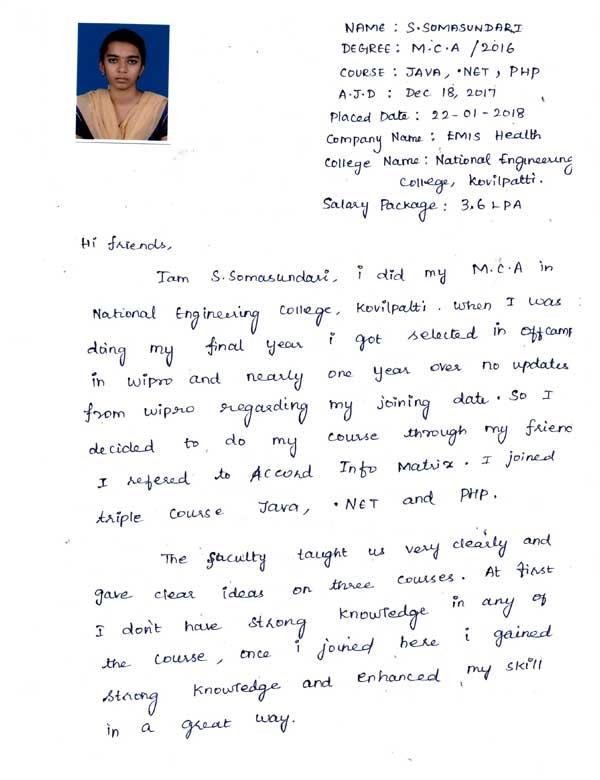 NAME : S.SOMASUNDARI
DEGREE : M.C.A /2016
COURSE : JAVA, .NET, PHP
A.J.D : Dec 18, 2017
Placed Date : 22-01-2018
Company Name : EMIS Health
College Name : National Engineering
College, Kovilpatti.
Salary Package : 3.6 LPA
Hi friends,
Iam S.Somasundari, i did my M.C.A in
National Engineering College, Kovilpatti. When I was
doing my final year i got selected in offcamp
in wipro and nearly one year over no updates
from wipro regarding my joining date. So I
decided to do my course through my frienc
I refered to Accord Info Matrix. I joined
triple course Java, .NET and PHP.
The faculty taught us very clearly and
gave clear ideas on three courses. At first
I don't have strong knowledge in any of
the course, once i joined here i gained
strong knowledge and enhanced my skill
in a great way.